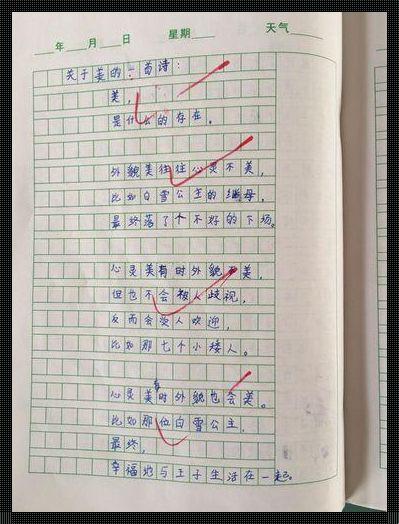 年 月 日 星期 天气
关于美的一首诗：
美，
是什么的存在。
外貌美往往心灵不美，
比如白雪公主的继母，
最终落了个不好的下场。
心灵美有时外貌不美，
但也不会被人歧视，
反而会受人欢迎，
比如那七个小矮人。
心灵美有时外貌也会美。
比如那位白雪公主，
最终，
幸福地与王子生活在一起。